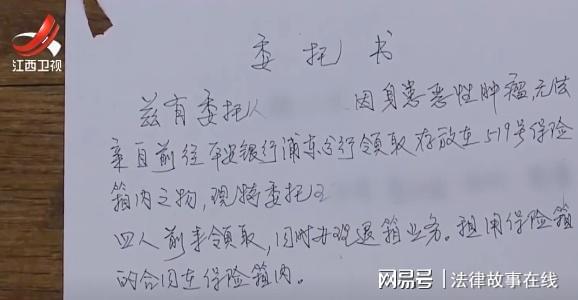 江西卫视
委托书
兹有委托人 因身患恶性肿瘤,无法
亲自前往平安银行浦东分行领取存放在519号保险
箱内之物,现特委托王
四人前来领取,同时办理退箱业务。租用保险箱
的合同在保险箱内。
网易号 法律故事在线